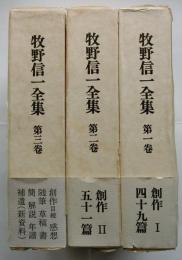 牧野信一全集
第一巻
創作 I
四十九篇
牧野信一全集
第二巻
創作 II
五十一篇
牧野信一全集
第三巻
創作 日記 感想
随筆 草稿 書
簡 解説 年譜
補遺(新資料)